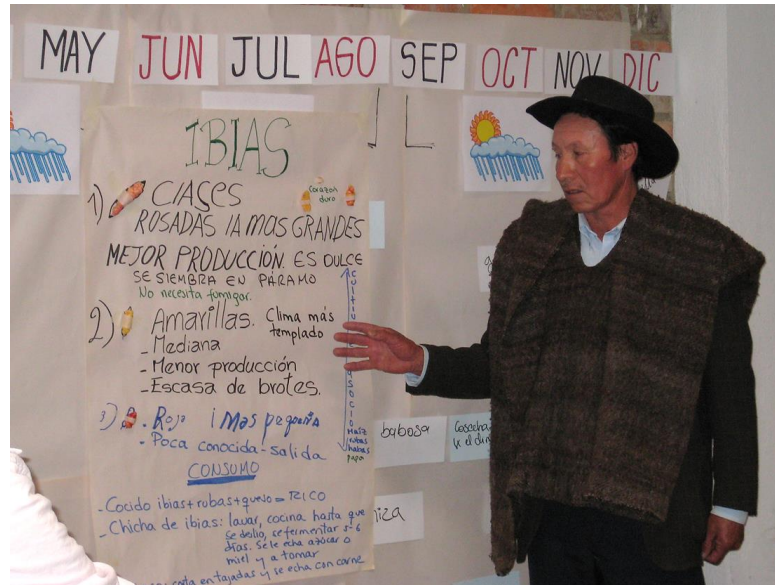 MAY JUN JUL AGO SEP OCT NOV DIC
IBIAS
1) ClASES
Corazon
duro
ROSADAS lA MAS GRANDES
MEJOR PRODUCCIÓN. ES DULCE
SE SIEMBRA EN PÁRAMO
No necesita fumigar.
2) Amarillas. Clima más
templado
- Mediana
- Menor producción
- Escasa de brotes.
3) - Roja Mas pequeña
- Poca conocida - salida
Maiz
rubas
habas
papa
CONSUMO
- Cocido ibias + rubas + queso = RICO
- Chicha de ibias: lavar, cocina hasta que
se deslie, se fermentar 5-6
días. Se le echa azúcar o
miel y a tomar
en tajadas y se echa con carne
babosa
Cosecha